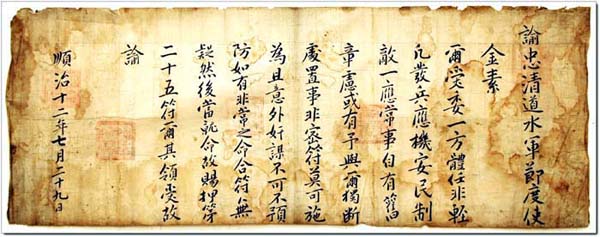 諭忠清道水軍節度使
金素
爾受委一方體任非輕
凡發兵應機安民制
敵一應常事自有舊
章慮或有予與爾獨斷
處置事非密符莫可施
為且意外奸謀不可不預
防如有非常之命合符無
疑然後當就命故賜押第
二十五符爾其領受故
諭
順治十二年七月二十九日